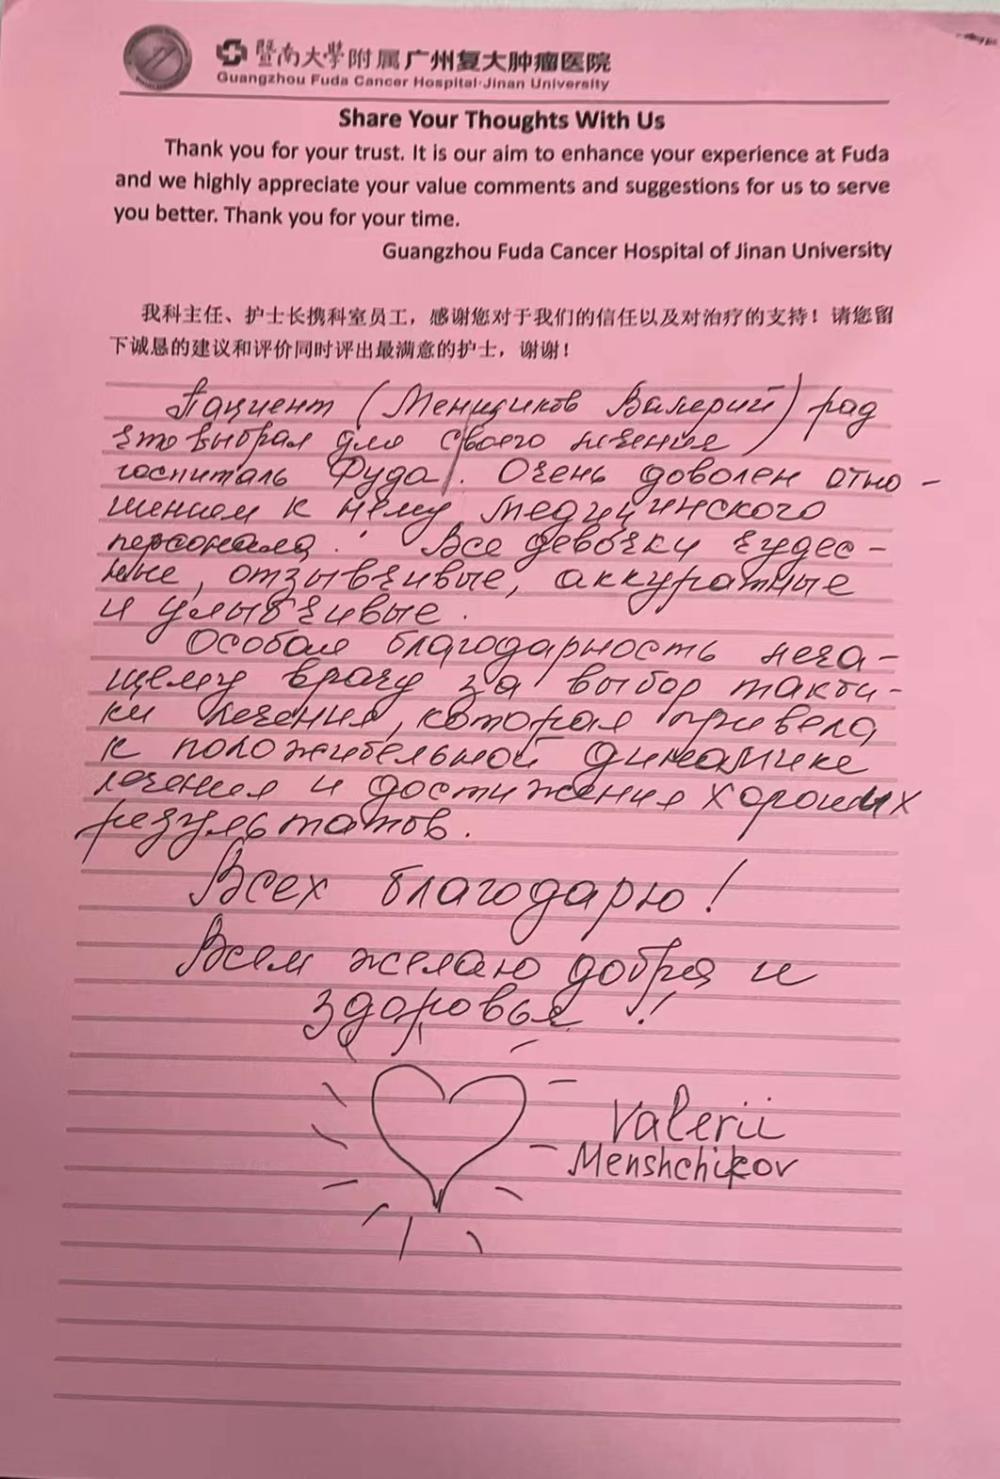 暨南大學附属广州复大肿瘤医院
Guangzhou Fuda Cancer Hospital·Jinan University
Share Your Thoughts With Us
Thank you for your trust. It is our aim to enhance your experience at Fuda
and we highly appreciate your value comments and suggestions for us to serve
you better. Thank you for your time.
Guangzhou Fuda Cancer Hospital of Jinan University
我科主任、护士长携科室员工，感谢您对于我们的信任以及对治疗的支持！请您留
下诚恳的建议和评价同时评出最满意的护士，谢谢！
Пациент (Менщиков Валерий) рад
что выбрал для своего лечения
госпиталь Фуда. Очень доволен отно-
шением к нему медицинского
персонала. Все девочки чудес-
ные, отзывчивые, аккуратные
и улыбчивые.
Особая благодарность леча-
щему врачу за выбор такти-
ки лечения, которая привела
к положительной динамике
лечения и достижения хороших
результатов.
Всех благодарю!
Всем желаю добра и
здоровья!
Valerii
Menshchikov